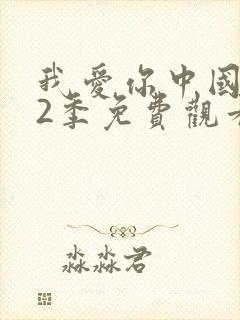 我愛你中國
2季免費觀看
淼淼君